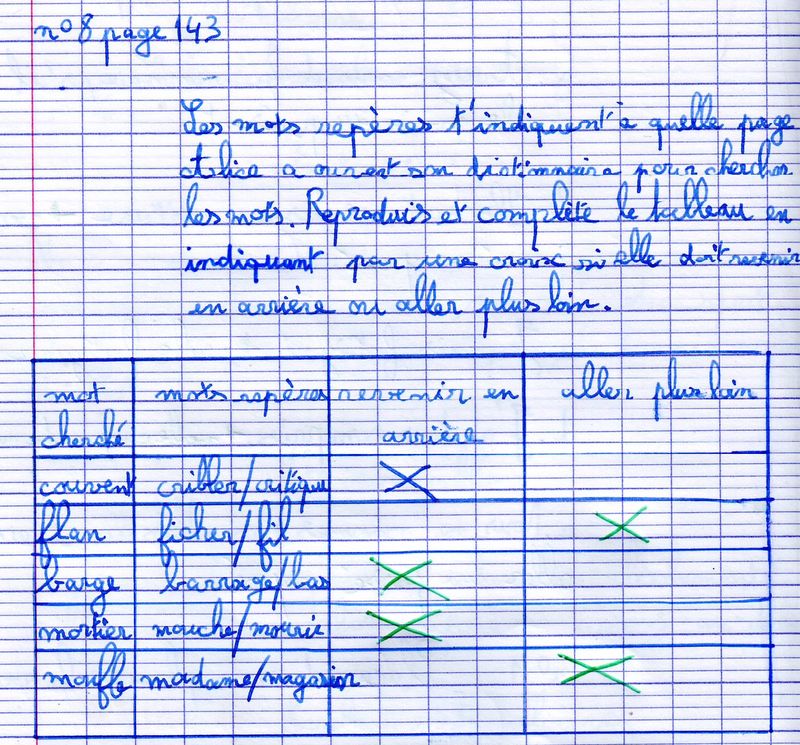 n° 8 page 143
Les mots repères t'indiquent à quelle page
Alice a ouvert son dictionnaire pour chercher
les mots. Reproduis et complète le tableau en
indiquant par une croix si elle doit revenir
en arrière ou aller plus loin.
mot mots repères revenir en aller plus loin
cherché arrière
couvent cribler/critique X
flan ficher/fil X
barge barrage/bas X
mortier mouche/mourir X
moufle madame/magasin X